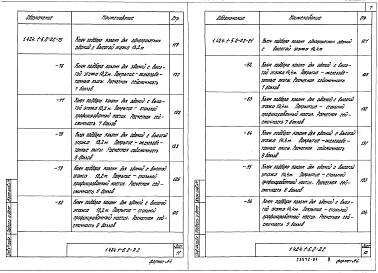 Обозначение
Наименование
Стр.
1.424.1-5.0-2.2-75
Ключ подбора колонн для одноэтажных
зданий с высотой этажа 13,2м
-76
Ключ подбора колонн для зданий с высо-
той этажа 13,2м. Покрытие - железобе-
тонные плиты. Расчетная сейсмичность
7 баллов
-77
Ключ подбора колонн для зданий с высо-
той этажа 13,2м. Покрытие - стальной
профилированный настил. Расчетная сей-
смичность 7 баллов
-78
Ключ подбора колонн для зданий с высотой
этажа 13,2м. Покрытие - железобе-
тонные плиты. Расчетная сейсмичность
8 баллов
-79
Ключ подбора колонн для зданий с высотой
этажа 13,2м. Покрытие - стальной
профилированный настил. Расчетная сей-
смичность 8 баллов
-80
Ключ подбора колонн для зданий с высо-
той этажа
Покрытие - стальной
профилированный настил. Расчетная сейс-
мичность 9 баллов
1.424.1-5.0-2.2
Лист
формат А4
7
Обозначение
Наименование
Стр.
1.424.1-5.0-2.2-81
Ключ подбора колонн для одноэтажных зданий
с высотой этажа 14,4м
-82
Ключ подбора колонн для зданий с высо-
той этажа 14,4м. Покрытие - железобе-
тонные плиты. Расчетная сейсмичность
7 баллов
-83
Ключ подбора колонн для зданий с высо-
той этажа 14,4м. Покрытие - стальной
профилированный настил. Расчетная сей-
смичность 7 баллов
-84
Ключ подбора колонн для зданий с высотой
этажа 14,4м. Покрытие - железобе-
тонные плиты. Расчетная сейсмичность
8 баллов
-85
Ключ подбора колонн для зданий с высотой
этажа 14,4м. Покрытие - стальной
профилированный настил. Расчетная сей-
смичность 8 баллов
-86
Ключ подбора колонн для зданий с высо-
той этажа 14,4м. Покрытие - стальной
профилированный настил. Расчетная сейс-
мичность 9 баллов
1.424.1-5.0-2.2
Лист
формат А4